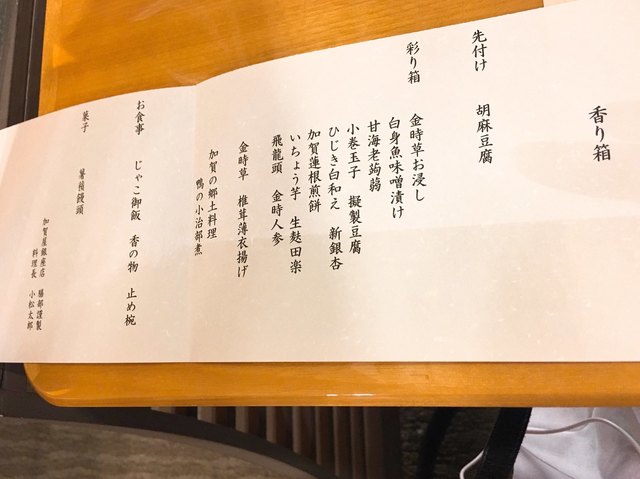 香り箱
先付け 胡麻豆腐
彩り箱 金時草お浸し
白身魚味噌漬け
甘海老蒟蒻
小巻玉子 擬製豆腐
ひじき白和え 新銀杏
加賀蓮根煎餅
いちょう芋 生麩田楽
飛龍頭 金時人参
金時草 椎茸薄衣揚げ
加賀の郷土料理
鴨の小治部煮
お食事 じゃこ御飯 香の物 止め椀
菓子 薯蕷饅頭
加賀屋銀座店 膳部謹製
料理長 小松太郎